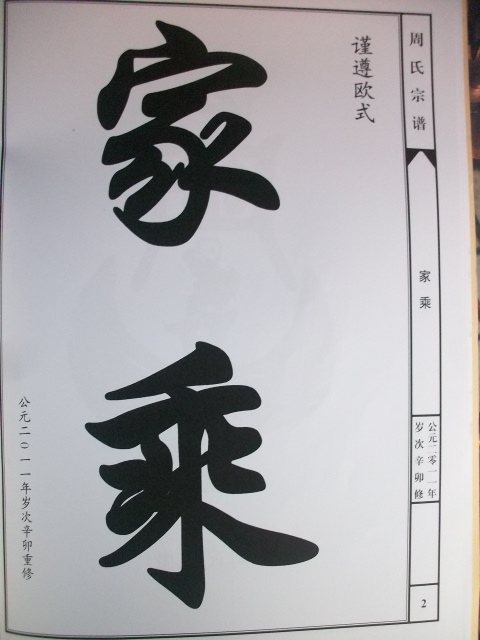 周氏宗谱
家乘
公元二零一一年
岁次辛卯修
2
谨遵欧式
家乘
公元二〇一一年岁次辛卯重修